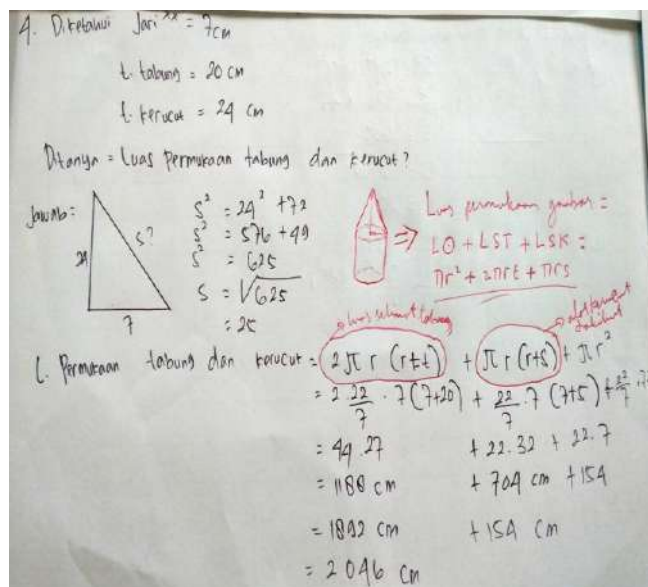 4. Diketahui Jari²² = 7cm
t. tabung = 20 cm
t. kerucut = 24 cm
Ditanya = Luas Permukaan tabung dan kerucut?
Jawab:
24
S?
7
S² = 24² + 72
S² = 576 + 49
S² = 625
S = √625
= 25
Luas permukaan gambar =
LO + LST + LSK =
πr² + 2πrt + πrs
luas selimut tabung
L. Permukaan tabung dan kerucut = 2πr (r+t) + πr (r+s) + πr²
= 2 . 22/7 . 7 (7+20) + 22/7 . 7 (7+5) + 22/7 . 7
= 44 . 27 + 22 . 32 + 22 . 7
= 1188 cm + 704 cm + 154
= 1892 cm + 154 cm
= 2046 cm